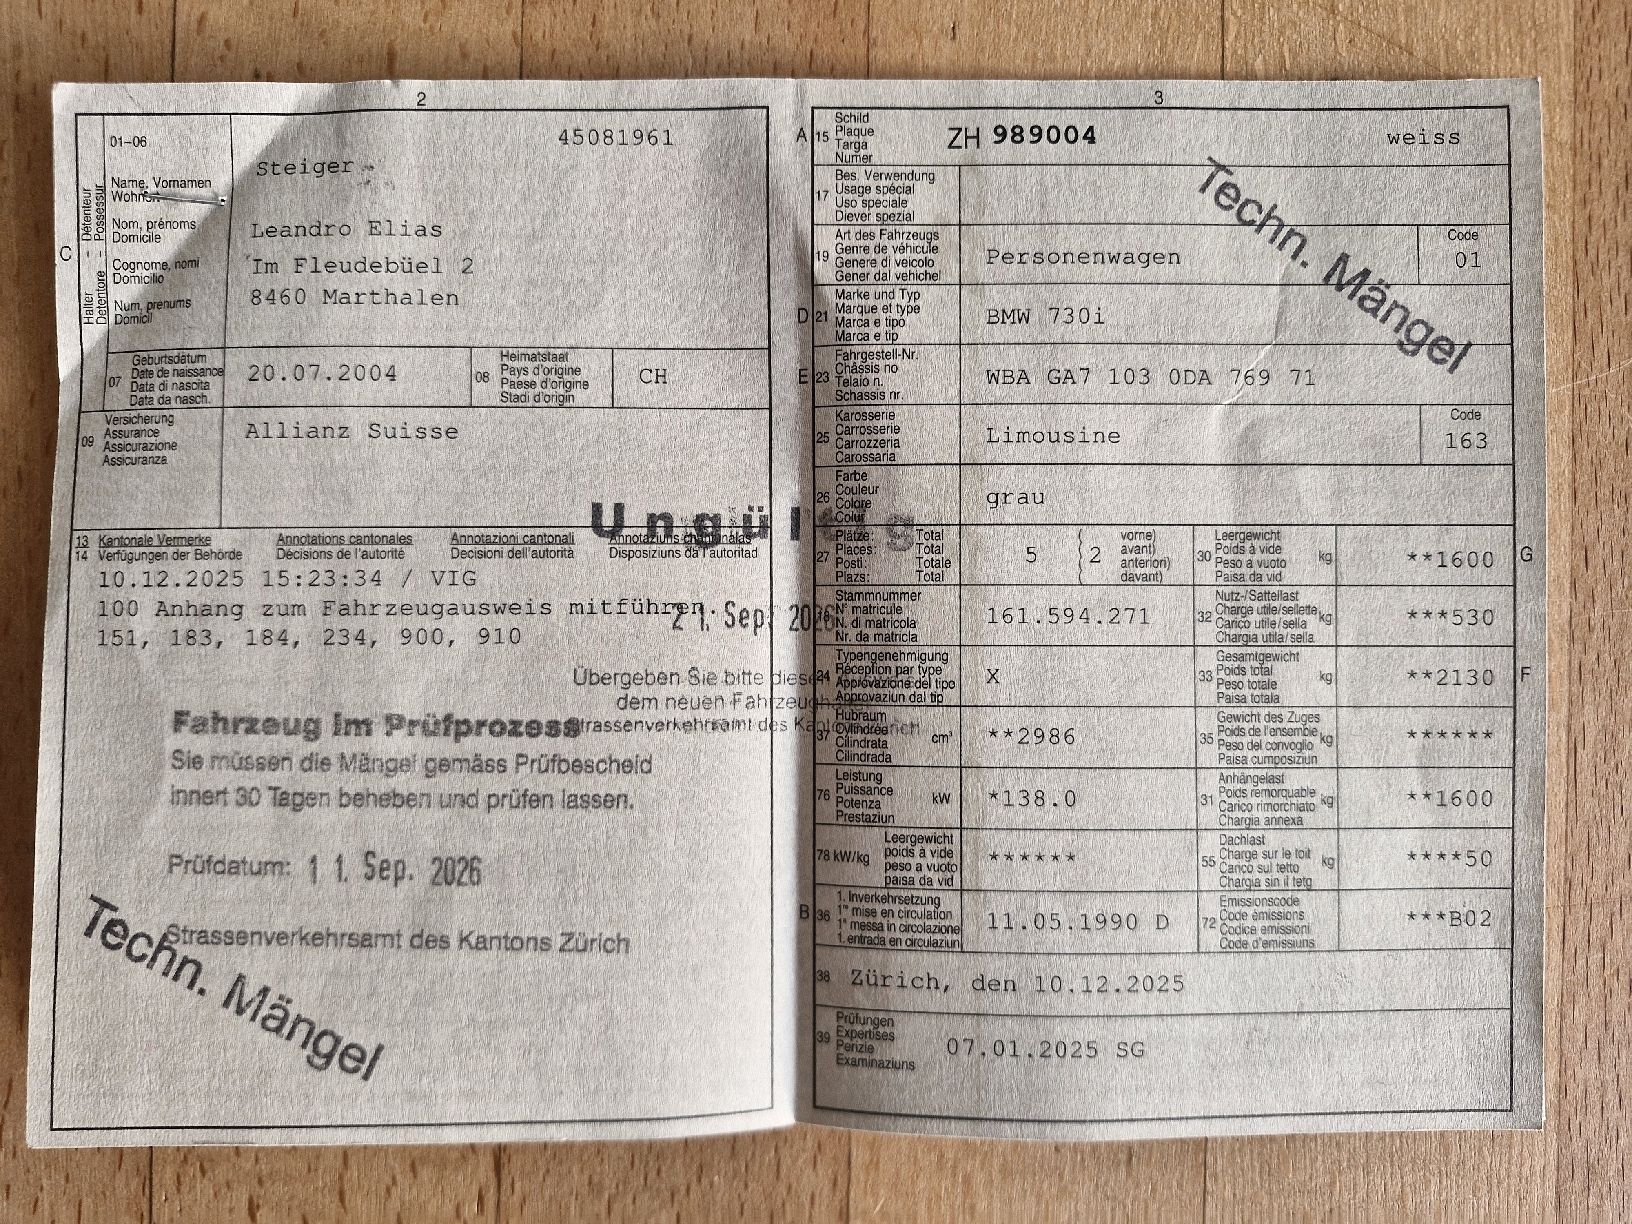 2
01–06
45081961
Name, Vornamen
Wohnort
Nom, prénoms
Domicile
Cognome, nomi
Domicilio
Num, prenums
Domicil
C
Halter - Détenteur
Detentore - Possessur
Steiger
Leandro Elias
Im Fleudebüel 2
8460 Marthalen
07
Geburtsdatum
Date de naissance
Data di nascita
Data da nasch.
20.07.2004
08
Heimatstaat
Pays d'origine
Paese d'origine
Stadi d'origin
CH
09
Versicherung
Assurance
Assicurazione
Assicuranza
Allianz Suisse
Ungültig
13 Kantonale Vermerke Annotations cantonales Annotazioni cantonali Annotaziuns chantunalas
14 Verfügungen der Behörde Décisions de l'autorité Decisioni dell'autorità Disposiziuns da l'autoritad
10.12.2025 15:23:34 / VIG
100 Anhang zum Fahrzeugausweis mitführen.
151, 183, 184, 234, 900, 910
21. Sep. 2026
Übergeben Sie bitte diesen
dem neuen Fahrzeughalter
Strassenverkehrsamt des Kantons Zürich
Fahrzeug im Prüfprozess
Sie müssen die Mängel gemäss Prüfbescheid
innert 30 Tagen beheben und prüfen lassen.
Prüfdatum: 11. Sep. 2026
Strassenverkehrsamt des Kantons Zürich
Techn. Mängel
3
A 15
Schild
Plaque
Targa
Numer
ZH 989004
weiss
Techn. Mängel
17
Bes. Verwendung
Usage spécial
Uso speciale
Diever spezial
19
Art des Fahrzeugs
Genre de véhicule
Genere di veicolo
Gener dal vehichel
Personenwagen
Code
01
D 21
Marke und Typ
Marque et type
Marca e tipo
Marca e tip
BMW 730i
E 23
Fahrgestell-Nr.
Châssis no
Telaio n.
Schassis nr.
WBA GA7 103 0DA 769 71
25
Karosserie
Carrosserie
Carrozzeria
Carossaria
Limousine
Code
163
26
Farbe
Couleur
Colore
Colur
grau
27
Plätze: Total
Places: Total
Posti: Totale
Plazs: Total
5
2
vorne)
avant)
anteriori)
davant)
30
Leergewicht
Poids à vide
Peso a vuoto
Paisa da vid
kg
**1600
G
Stammnummer
N° matricule
N. di matricola
Nr. da matricla
161.594.271
32
Nutz-/Sattellast
Charge utile/sellette
Carico utile/sella
Chargia utila/sella
kg
***530
24
Typengenehmigung
Réception par type
Approvazione del tipo
Approvaziun dal tip
X
33
Gesamtgewicht
Poids total
Peso totale
Paisa totala
kg
**2130
F
37
Hubraum
Cylindrée
Cilindrata
Cilindrada
cm³
**2986
35
Gewicht des Zuges
Poids de l'ensemble
Peso del convoglio
Paisa cumposiziun
kg
******
76
Leistung
Puissance
Potenza
Prestaziun
kW
*138.0
31
Anhängelast
Poids remorquable
Carico rimorchiato
Chargia annexa
kg
**1600
78 kW/kg
Leergewicht
poids à vide
peso a vuoto
paisa da vid
******
55
Dachlast
Charge sur le toit
Carico sul tetto
Chargia sin il tetg
kg
****50
B 36
1. Inverkehrsetzung
1re mise en circulation
1a messa in circolazione
1. entrada en circulaziun
11.05.1990 D
72
Emissionscode
Code émissions
Codice emissioni
Code d'emissiuns
***B02
38 Zürich, den 10.12.2025
39
Prüfungen
Expertises
Perizie
Examinaziuns
07.01.2025 SG